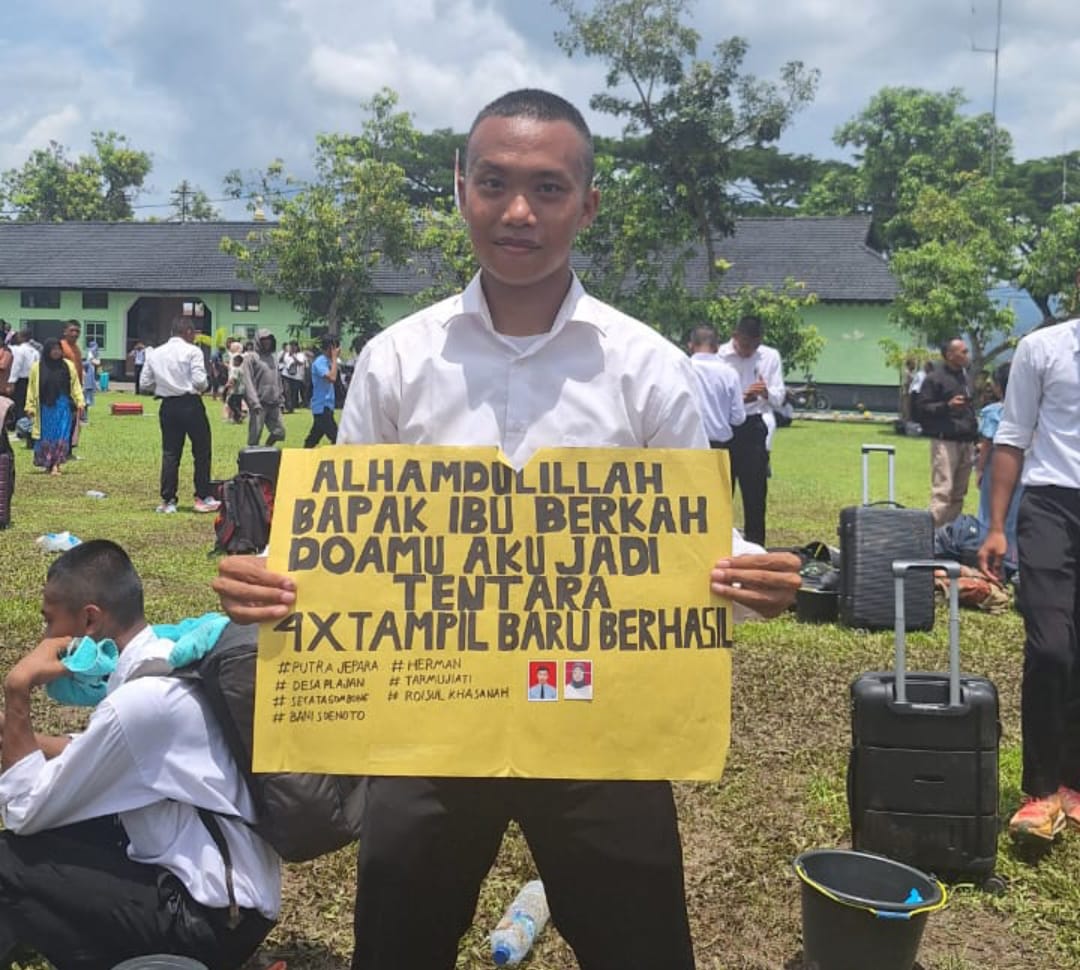 ALHAMDULILLAH
BAPAK IBU BERKAH
DOAMU AKU JADI
TENTARA
4X TAMPIL BARU BERHASIL
#PUTRA JEPARA
# DESA PLAJAN
# SECATA GOMBONG
# BANI SOENOTO
# HERMAN
# TARMUJIATI
# ROISUL KHASANAH